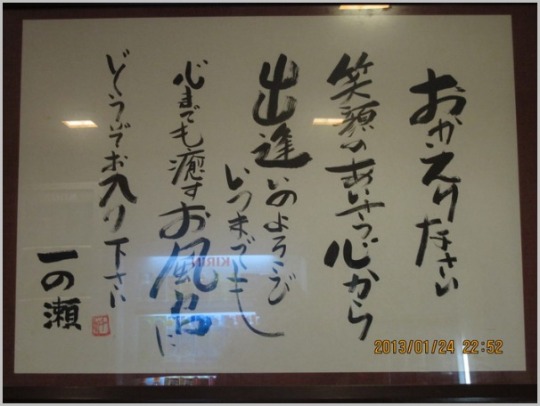 おかえりなさい
笑顔のあいさつ心から
出逢いのよろこび
いつまでも
心までも癒すお風呂に
どうぞお入り下さい
一の瀬
KIRIN
2013/01/24 22:52